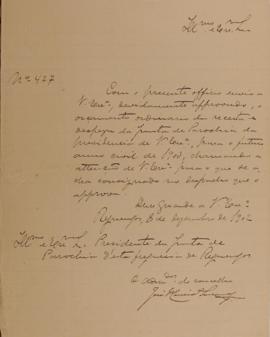 Illmo e Exmo Sr.
Nº 427
Com o presente officio envio a
V. Exa, devidamente approvado, o
orçamento ordinario da receita e
despeza da Junta de Parochia da
presidencia de V. Exa, para o futuro
anno civil de 1903, chamando a
attenção de V. Exa para o que se a-
cha consignado no despacho que o
approva.
Deus Guarde a V. Exa
Reguengos, 6 de dezembro de 1902
Illmo e Exmo Sr. Presidente da Junta de
Parochia d'esta freguesia de Reguengos
O Admor do concelho
José